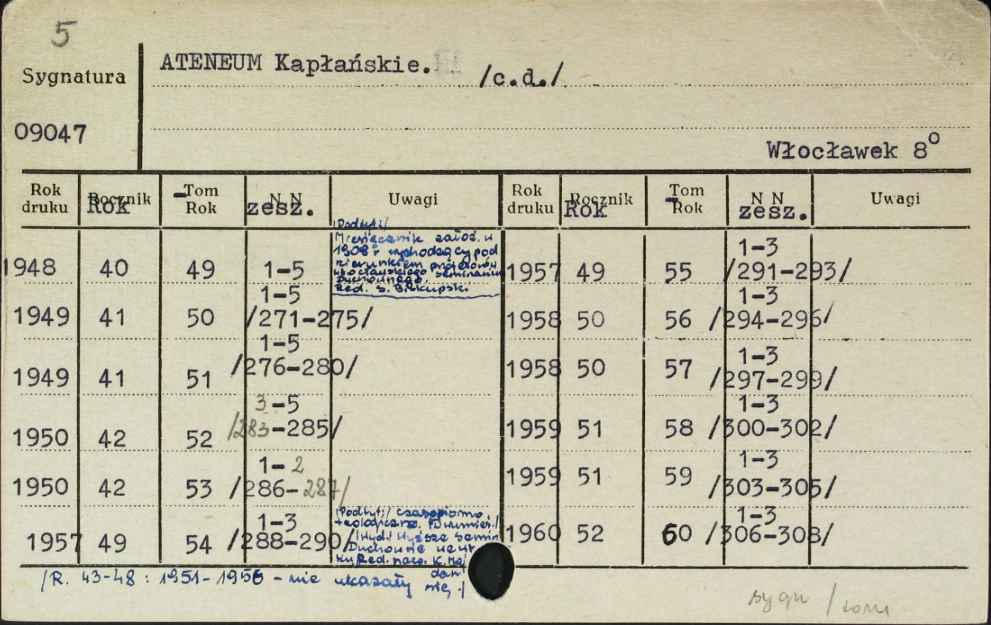 5
Sygnatura
09047
ATENEUM Kapłańskie. /c.d./
Włocławek 8°
Rok druku Rocznik Rok Tom Rok N N zesz. Uwagi Rok druku Rocznik Rok Tom Rok N N zesz. Uwagi
1948 40 49 1-5
/Podtyt:/
Miesięcznik załoź. w
1909 r wychodzący pod
kierunkiem profesorów
włocławskiego seminarium
duchownego.
Red. S. Biskupski
1949 41 50 1-5 /271-275/
1949 41 51 1-5 /276-280/
1950 42 52 3-5 /283-285/
1950 42 53 1-2 /286-287/
1957 49 54 1-3 /288-290/
/Podtyt:/ Czasopismo
/Wyd: Wyższe Semin
Duchowne
Red.
/R. 43-48 : 1951-1956 - nie ukazały się./
1957 49 55 1-3 /291-293/
1958 50 56 1-3 /294-296/
1958 50 57 1-3 /297-299/
1959 51 58 1-3 /300-302/
1959 51 59 1-3 /303-305/
1960 52 60 1-3 /306-308/
sygn / tom